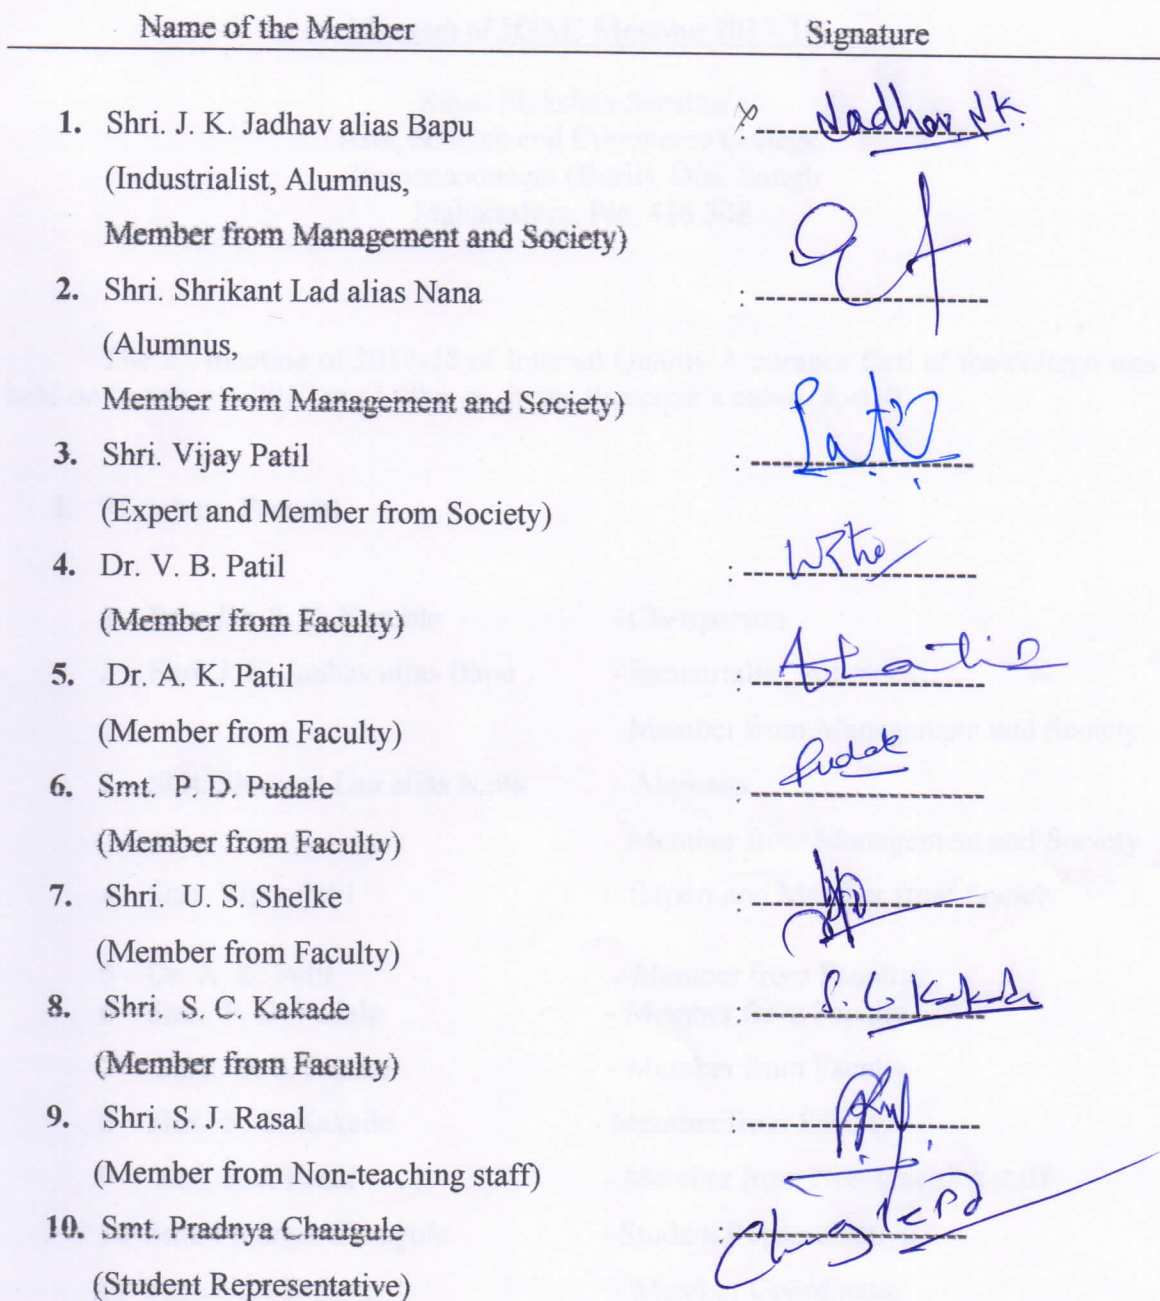 Name of the Member Signature
1. Shri. J. K. Jadhav alias Bapu :
(Industrialist, Alumnus,
Member from Management and Society)
2. Shri. Shrikant Lad alias Nana :
(Alumnus,
Member from Management and Society)
3. Shri. Vijay Patil :
(Expert and Member from Society)
4. Dr. V. B. Patil :
(Member from Faculty)
5. Dr. A. K. Patil :
(Member from Faculty)
6. Smt. P. D. Pudale : Pudale
(Member from Faculty)
7. Shri. U. S. Shelke :
(Member from Faculty)
8. Shri. S. C. Kakade : S. C. Kakade
(Member from Faculty)
9. Shri. S. J. Rasal :
(Member from Non-teaching staff)
10. Smt. Pradnya Chaugule :
(Student Representative)